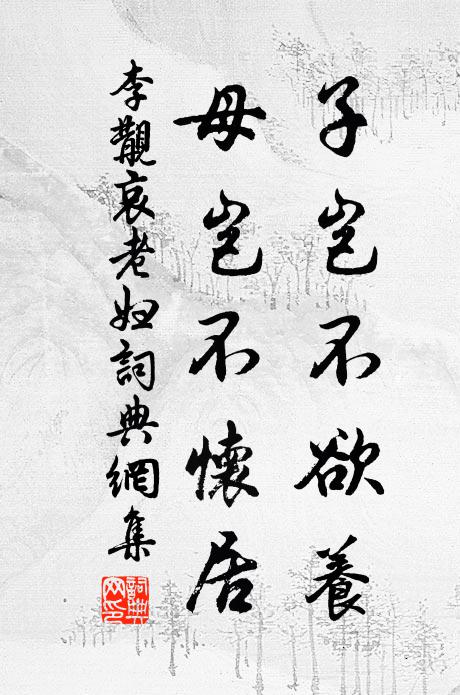 子豈不欲養
母豈不懷居
李覯哀老妇詞典網集
詞典
网印